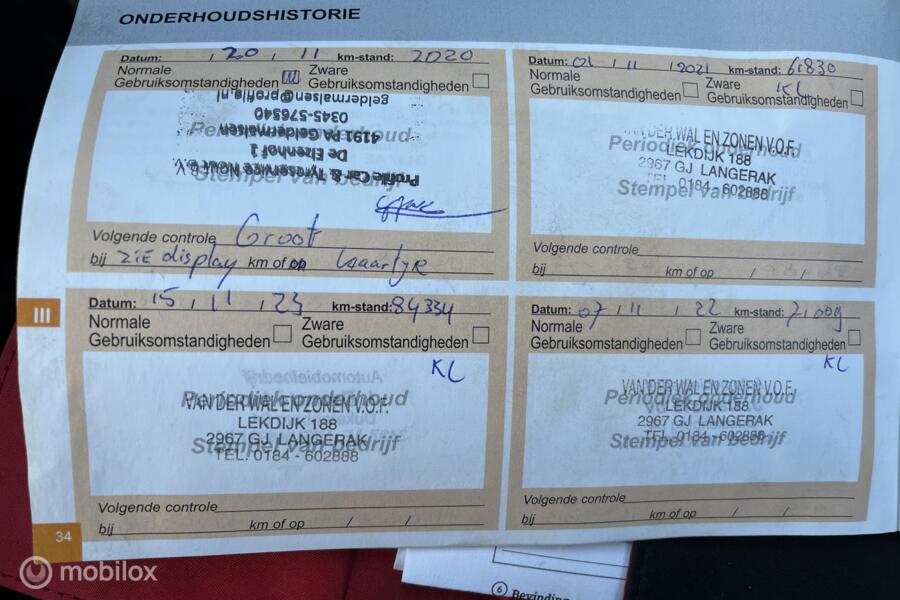 ONDERHOUDSHISTORIE
Datum: , 20 , 11 km-stand: 2020
Normale Gebruiksomstandigheden Zware Gebruiksomstandigheden
Periodiek onderhoud
Stempel van bedrijf
Profile Car & Tyreservice
De Elzenhof 1
4191 PA Geldermalsen
0345-576540
geldermalsen@profile.nl
Volgende controle Groot
bij ZIE display km of op kaartje
Datum: 01 / 11 / 2021 km-stand: 61830
Normale Gebruiksomstandigheden Zware Gebruiksomstandigheden
KL
VAN DER WAL EN ZONEN V.O.F.
Periodiek onderhoud
LEKDIJK 188
2967 GJ LANGERAK
Stempel van bedrijf
TEL. 0184 - 602888
Volgende controle
bij km of op / /
III
Datum: 15 / 11 / 23 km-stand: 84334
Normale Gebruiksomstandigheden Zware Gebruiksomstandigheden
KL
Automobielbedrijf
VAN DER WAL EN ZONEN V.O.F.
Periodiek onderhoud
LEKDIJK 188
2967 GJ LANGERAK
Stempel van bedrijf
TEL. 0184 - 602888
Volgende controle
bij km of op / /
Datum: 07 / 11 / 22 km-stand: 71009
Normale Gebruiksomstandigheden Zware Gebruiksomstandigheden
KL
VAN DER WAL EN ZONEN V.O.F.
Periodiek onderhoud
LEKDIJK 188
2967 GJ LANGERAK
Stempel van bedrijf
TEL. 0184 - 602888
Volgende controle
bij km of op / /
34
mobilox
6 Bevinding